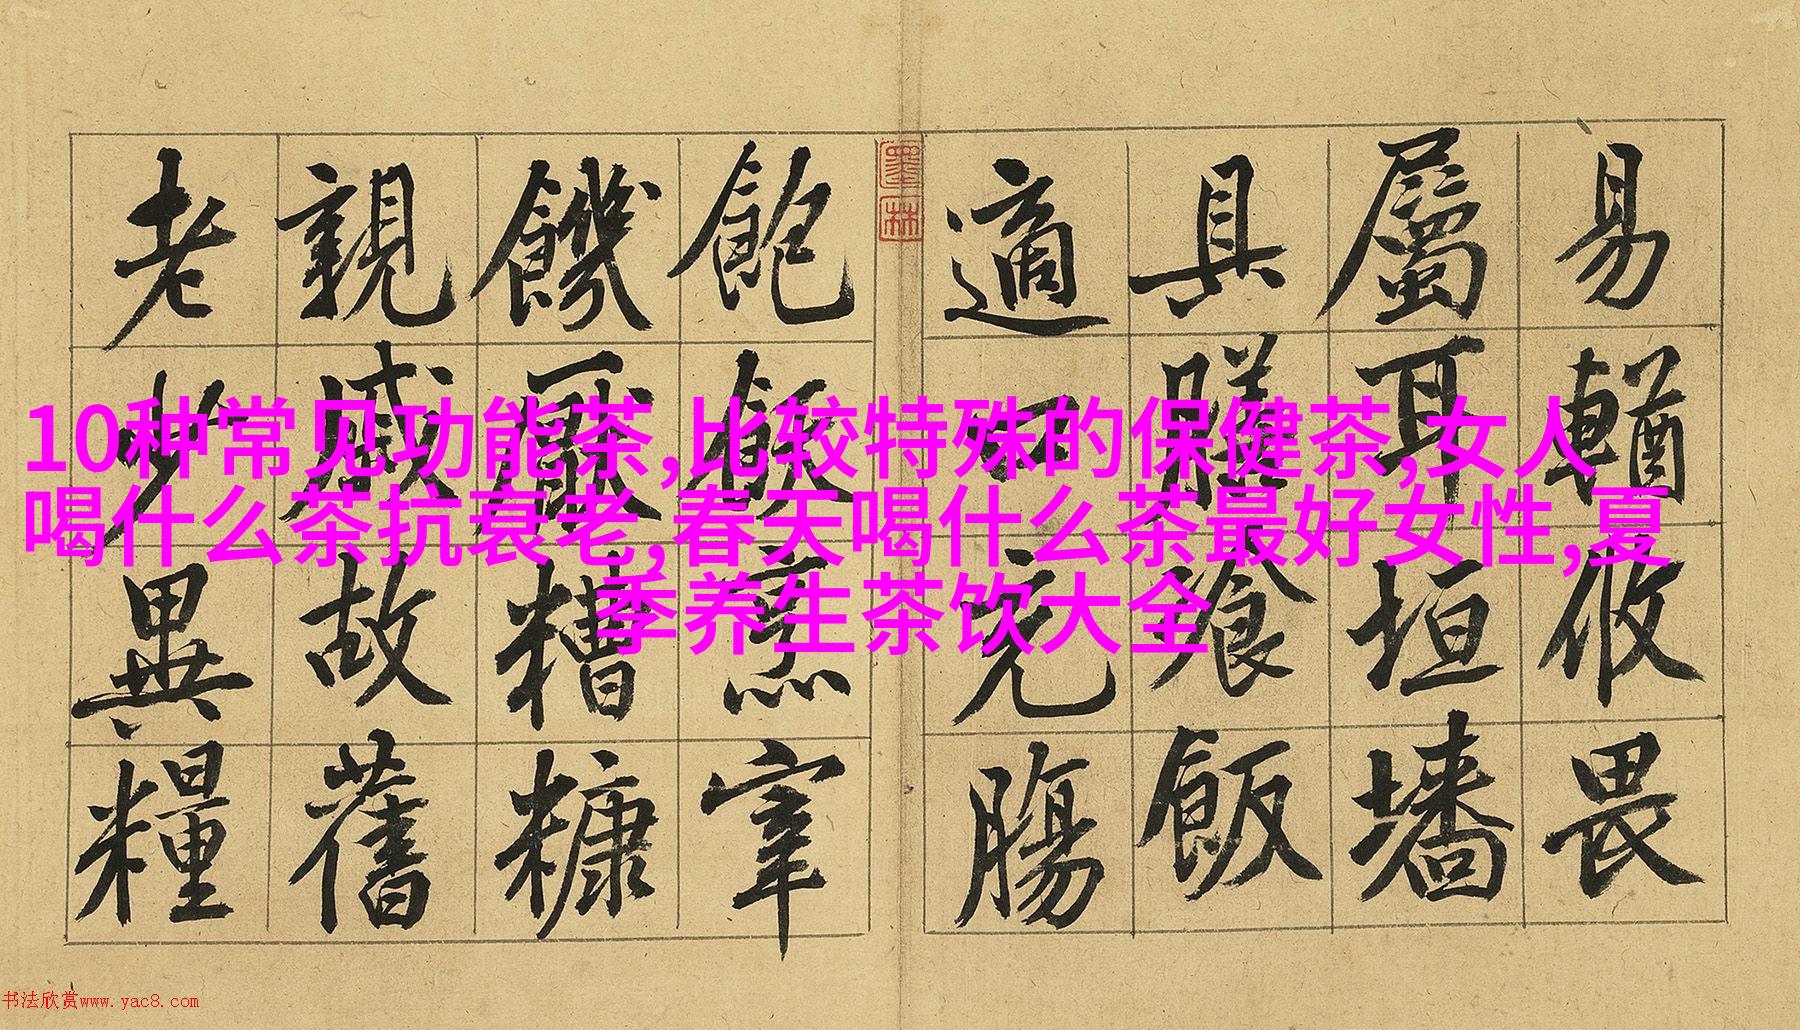 易輶攸畏
屬耳垣墻
具膳飡飯
適口充腸
飽飫烹宰
饑厭糟糠
親戚故舊
老少異糧
墨林
10种常见功能茶,比较特殊的保健茶,女人
喝什么茶抗衰老,春天喝什么茶最好女性,夏
季养生茶饮大全
书法欣赏www.yac8.com